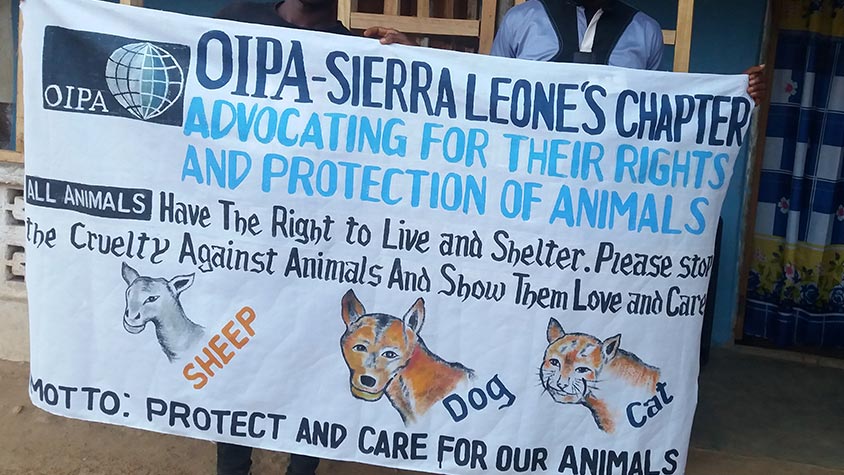 OIPA
OIPA-SIERRA LEONE'S CHAPTER
ADVOCATING FOR THEIR RIGHTS
AND PROTECTION OF ANIMALS
ALL ANIMALS Have The Right to Live and Shelter. Please stop
the Cruelty Against Animals And Show Them Love and Care
SHEEP
Dog
Cat
MOTTO: PROTECT AND CARE FOR OUR ANIMALS